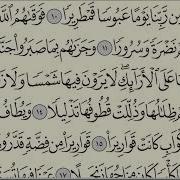 مِن رَّبِّنَا يَوْمًا عَبُوسًا قَمْطَرِيرًا ١٠ فَوَقَىٰهُمُ ٱللَّهُ
نَضْرَةً وَسُرُورًا ١١ وَجَزَىٰهُم بِمَا صَبَرُوا۟ جَنَّةً
عَلَى ٱلْأَرَآئِكِ لَا يَرَوْنَ فِيهَا شَمْسًا وَلَا زَ
ظِلَٰلُهَا وَذُلِّلَتْ قُطُوفُهَا تَذْلِيلًا ١٤ وَيُطَافُ
كْوَابٍ كَانَتْ قَوَارِيرَا۠ ١٥ قَوَارِيرَا۟ مِن فِضَّةٍ قَدَّرُو
كَانَ مِزَاجُهَا زَنجَبِيلًا ١٧